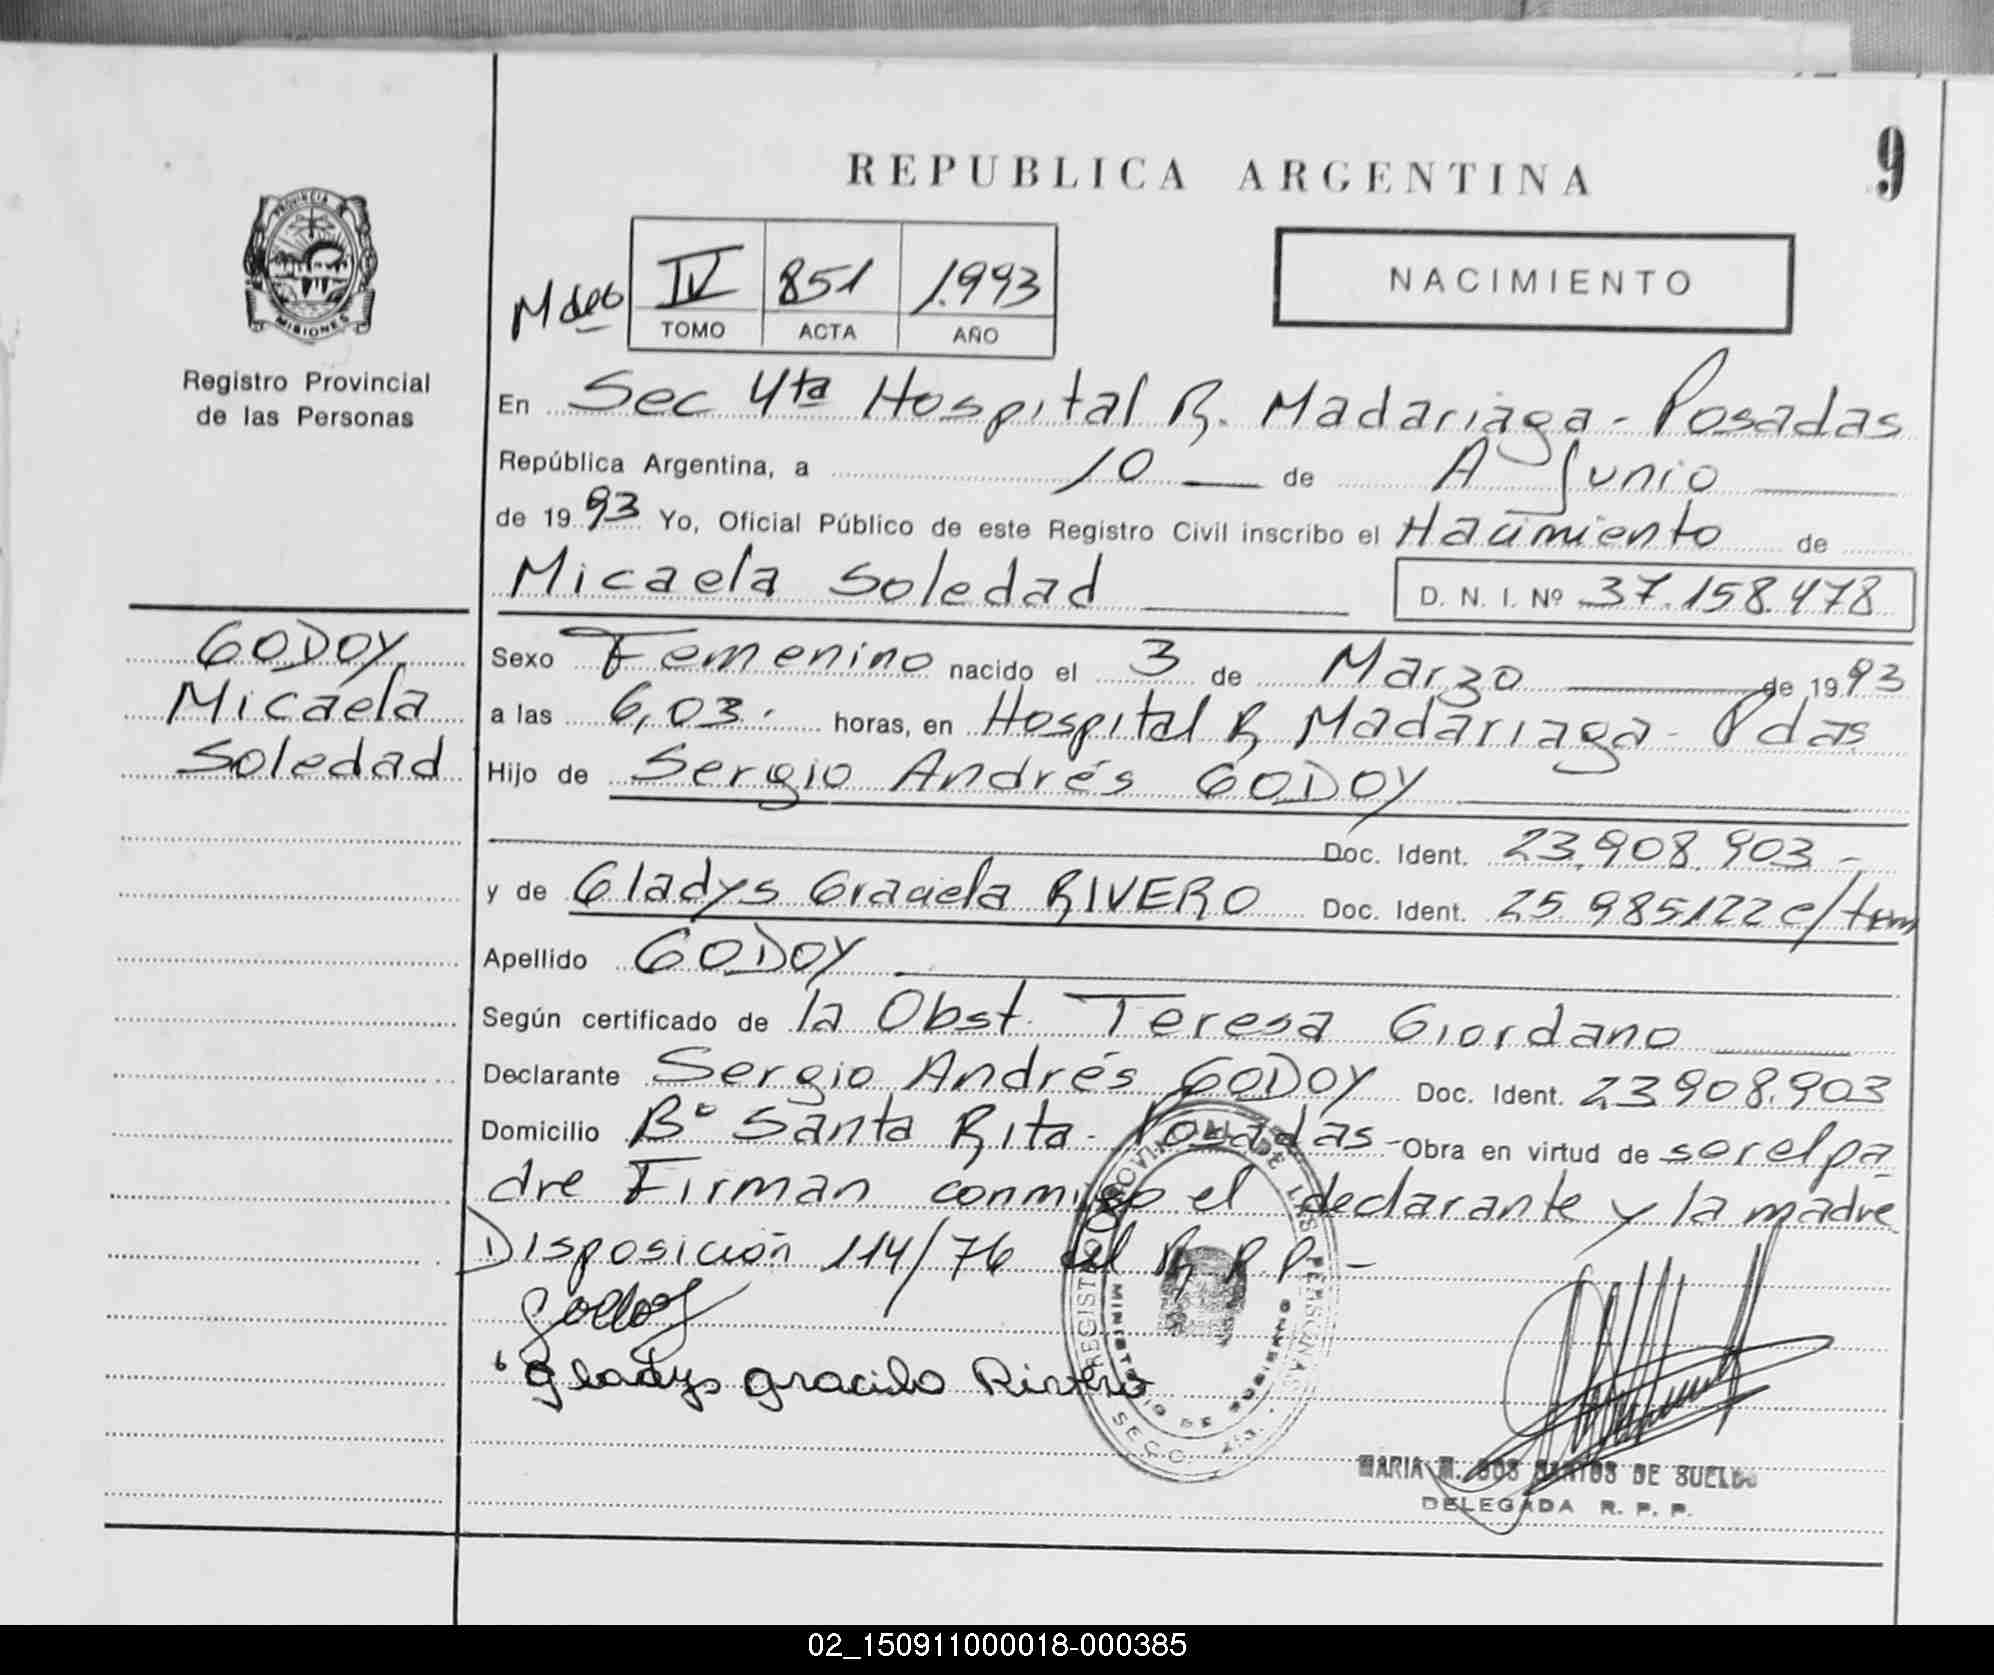 REPUBLICA ARGENTINA
9
PROVINCIA DE
MISIONES
Registro Provincial
de las Personas
NACIMIENTO
IV 851 1.993
TOMO ACTA AÑO
En Sec 4ta Hospital R. Madariaga - Posadas
República Argentina, a 10 de A Junio
de 19 93 Yo, Oficial Público de este Registro Civil inscribo el Nacimiento de
Micaela Soledad D. N. I. Nº 37.158.478
GODOY
Micaela
Soledad
Sexo Femenino nacido el 3 de Marzo de 19 93
a las 6,03. horas, en Hospital R Madariaga - Pdas
Hijo de Sergio Andrés GODOY
Doc. Ident. 23.908.903 -
y de Gladys Graciela RIVERO Doc. Ident. 25.985122 e/trm
Apellido GODOY
Según certificado de la Obst. Teresa Giordano
Declarante Sergio Andrés GODOY Doc. Ident. 23.908.903
Domicilio Bº Santa Rita - Posadas - Obra en virtud de ser el pa
dre Firman conmigo el declarante y la madre
Disposición 114/76 del R. R. P. -
Godoy
gladys gracila Rivero
REGISTRO PROVINCIAL DE LAS PERSONAS
MINISTERIO DE GOBIERNO
SECC. 4ta.
MARIA M. DOS SANTOS DE SUELDO
DELEGADA R. P. P.
02_150911000018-000385